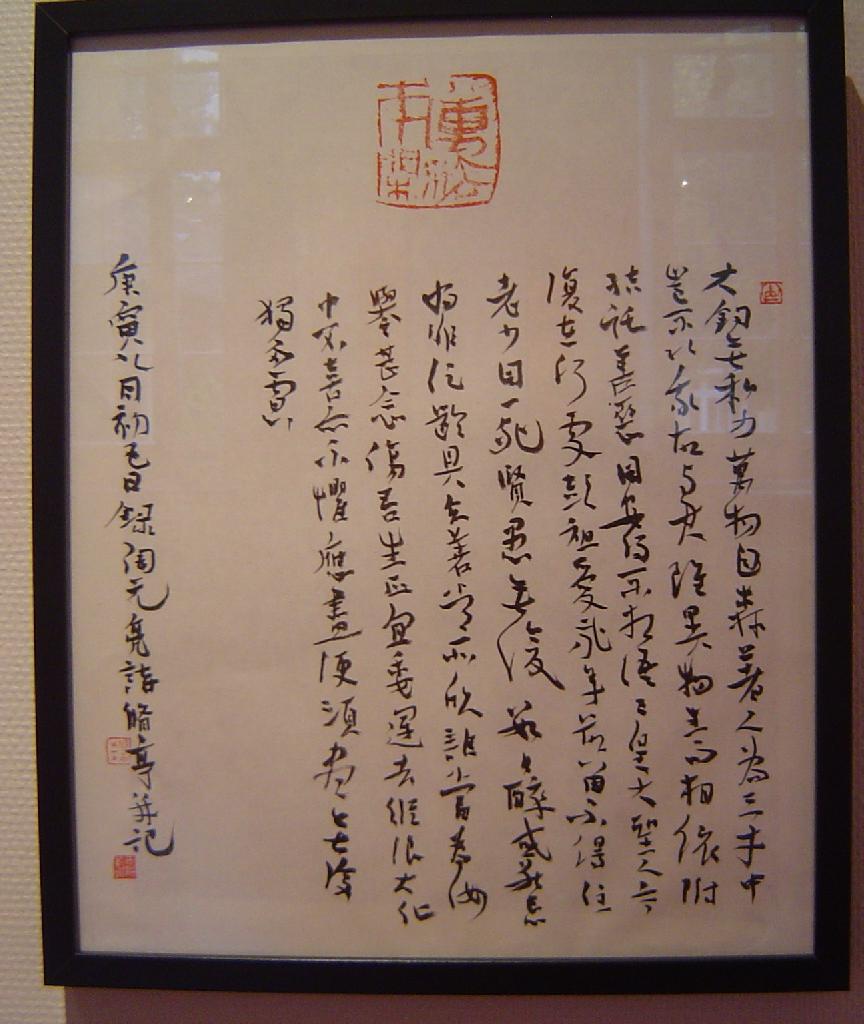 萬法本閑
大鈞無私力萬物自森著人為三才中
豈不以我故與君雖異物生而相依附
結託善惡同安得不相語三皇大聖人今
復在何處彭祖愛永年欲留不得住
老少同一死賢愚無復數日醉或能忘
將非促齡具立善常所欣誰當為汝
譽甚念傷吾生正宜委運去縱浪大化
中不喜亦不懼應盡便須盡無復
獨多慮
庚寅八月初日錄陶元亮詩脩亭并記